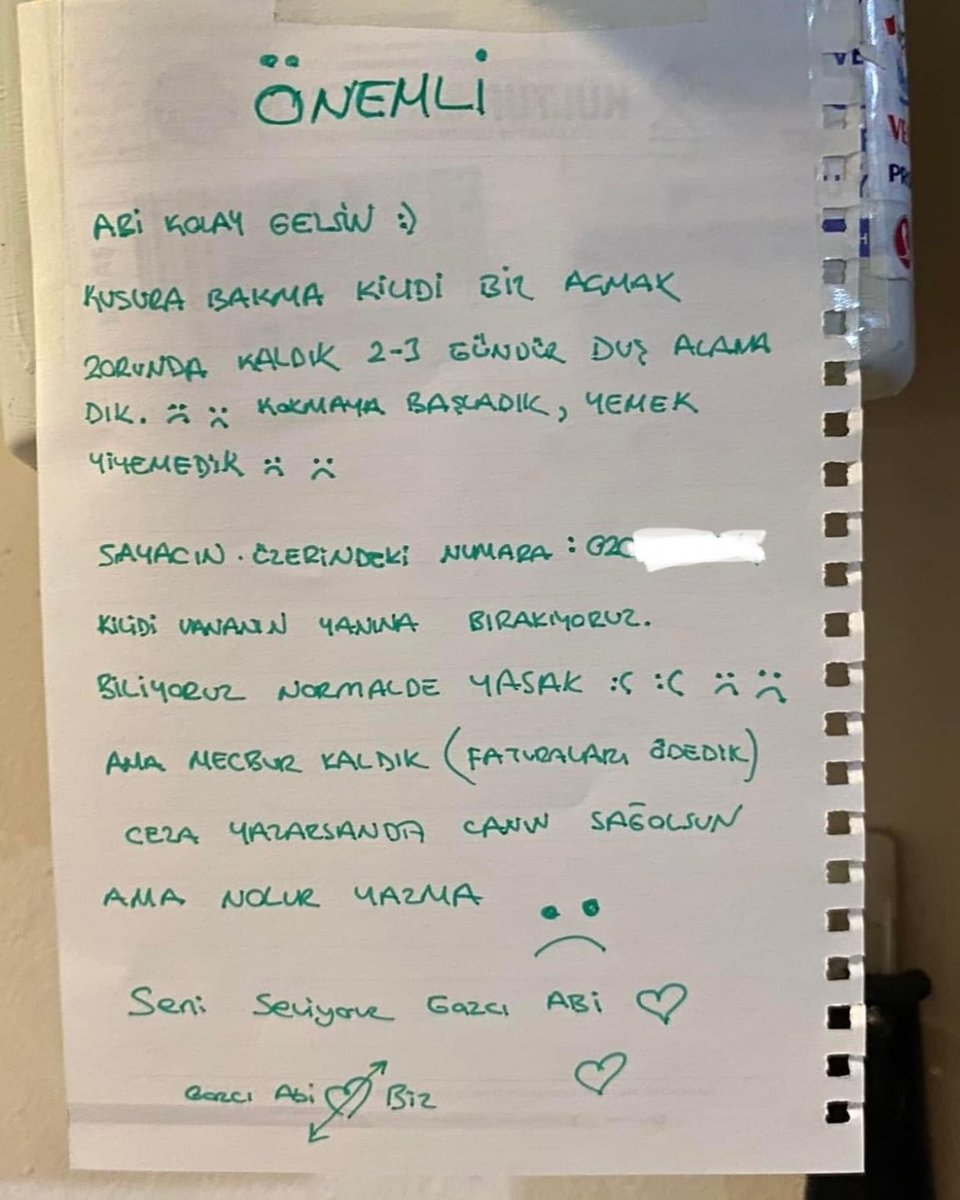 ÖNEMLİ
ABİ KOLAY GELSİN :)
KUSURA BAKMA KİLİDİ BİZ AÇMAK
ZORUNDA KALDIK 2-3 GÜNDÜR DUŞ ALAMA
DIK. :( :( KOKMAYA BAŞLADIK, YEMEK
YİYEMEDİK :( :(
SAYACIN. ÜZERİNDEKİ NUMARA : 020
KİLİDİ VANANIN YANINA BIRAKIYORUZ.
BİLİYORUZ NORMALDE YASAK :( :( :( :(
AMA MECBUR KALDIK (FATURALARI ÖDEDİK)
CEZA YAZARSANDA CANIN SAĞOLSUN
AMA NOLUR YAZMA
Seni Seviyoruz Gazcı ABi ♡
♡
Gazcı Abi ♡ Biz